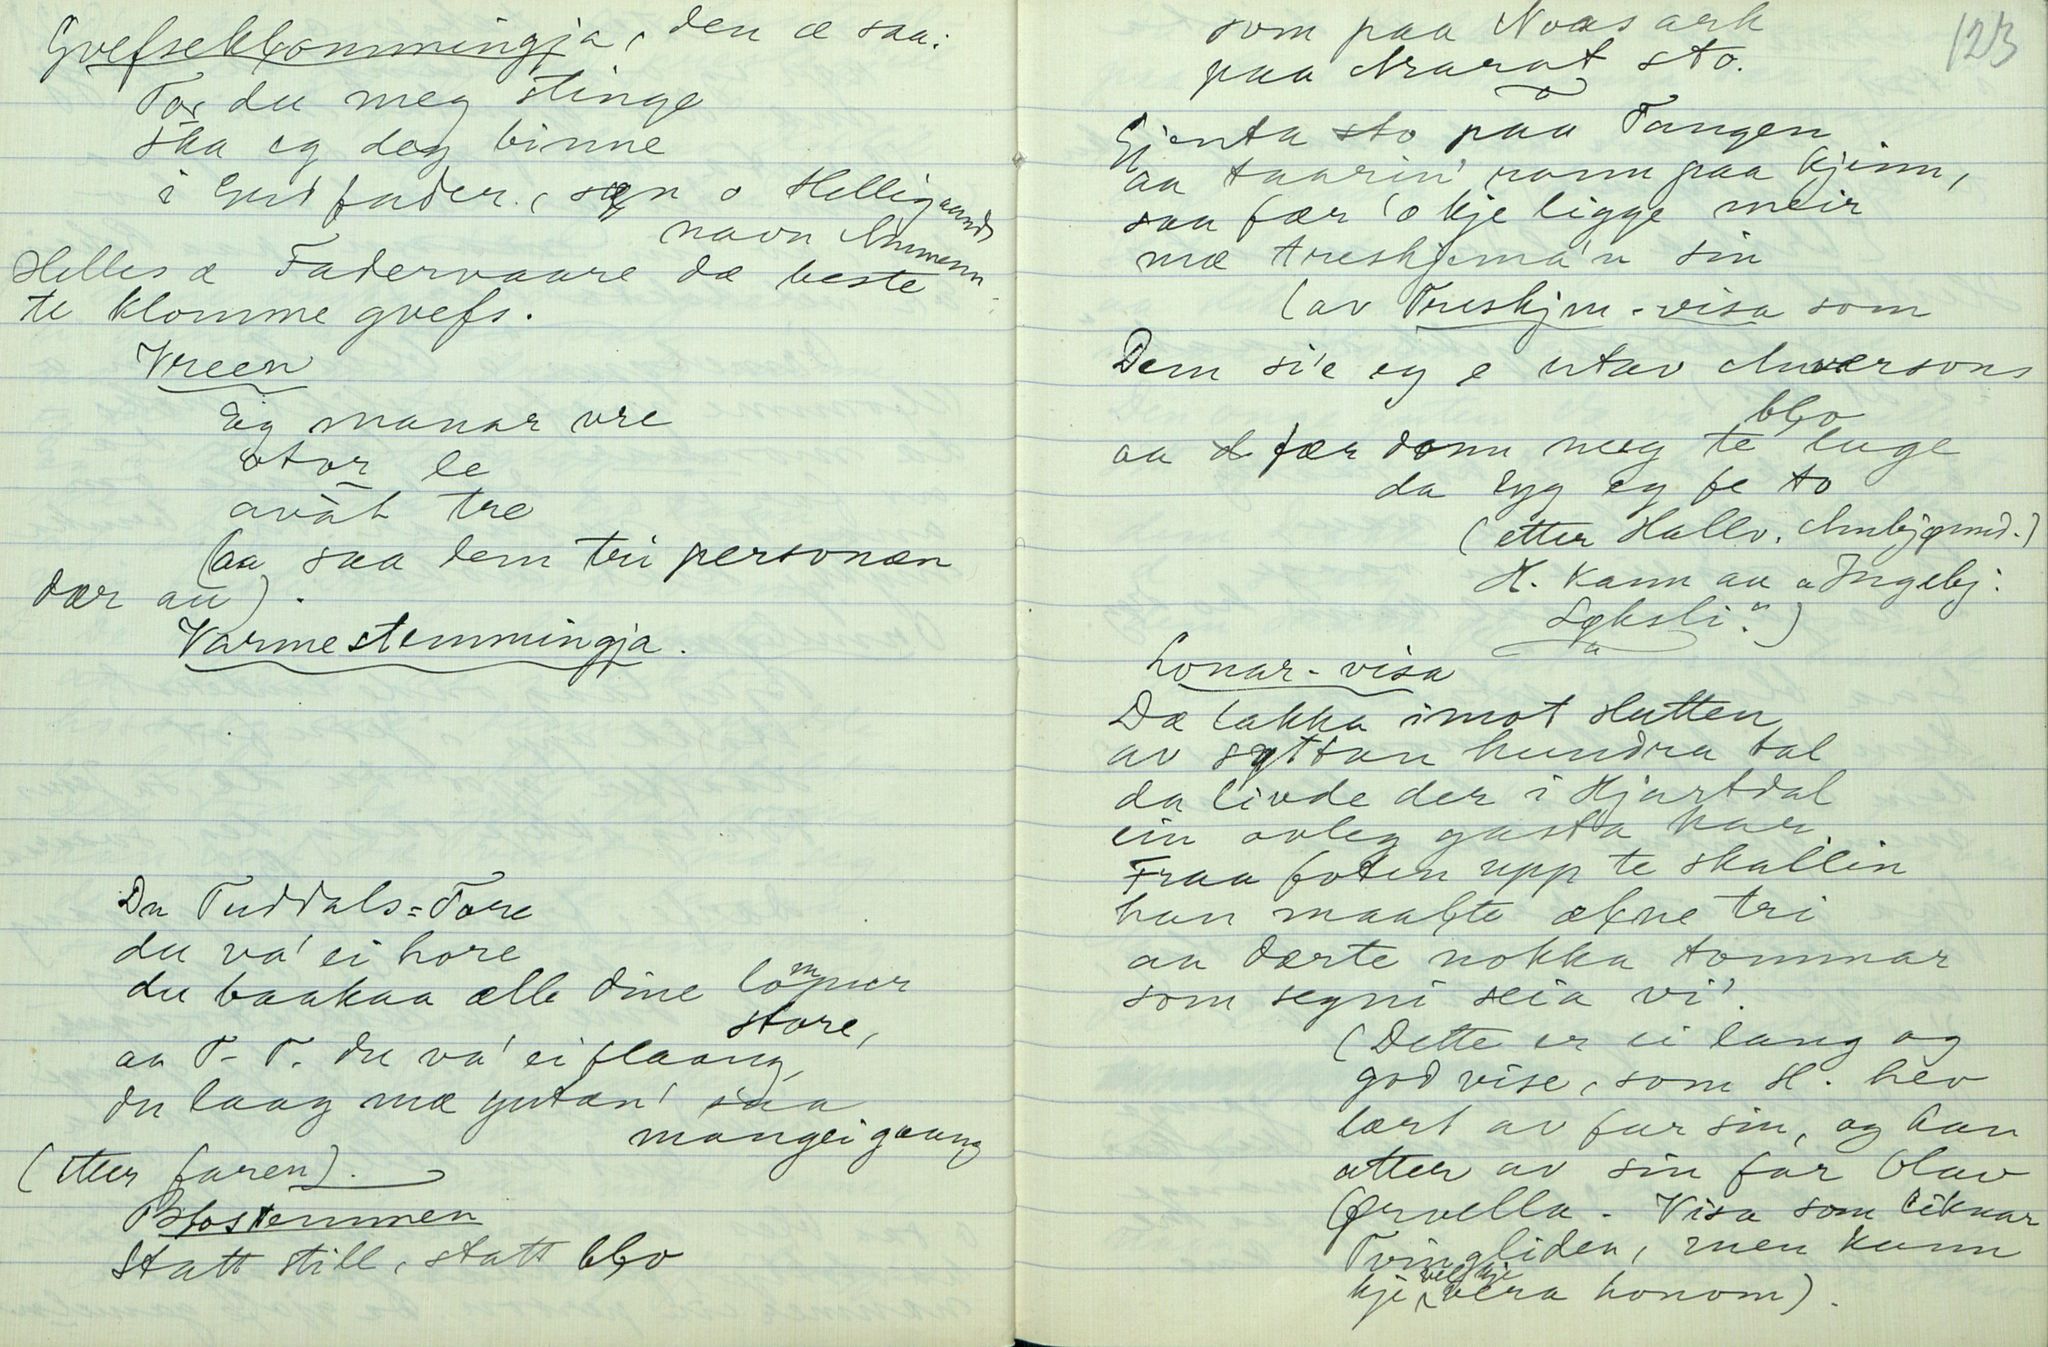 Gvefseklommingja, den æ saa:
Tor du meg stinge
ska eg deg binne
i Gud fader, søn o Helligaands
navn Ammenn
Helles æ Fadervaare dæ beste
te klomme gvefs.
Vreen
Eig manar vre
otor le
avát tre
(aa saa dem tri personæn
dær au).
Varmestemmingja.
Du Tuddals=Tore
du va' ei hore
du baakaa ælle dine lompur
store,
aa T- T. du va' ei flaang,
du laag mæ gutan' saa
mangei gaang
(etter faren).
Blostemmen
Statt still, statt blo
som paa Noas ark
paa Ararat sto.
123
Gjenta sto paa Tangen
aa taarin' rann paa kjinn,
saa fær 'o kje ligge meir
mæ treskjema'n sin
(av Treskjm-visa som
Dem si'e eg e utav Anversons
blo
aa fær domm meg te ljuge
da lyg eg fe to
(etter Hallv. Ambjørnd.)
H. kann aa "Ingebj:
Løksli".)
Lonar-visa
Dæ lakka imot slutten
av syttan hundra tal
da livde der i Hjartdal
ein ovleg gasta kar.
Fraa foten upp te skallin
han maalte ælne tri
aa dærte nokka tommar
som segni seia vi'.
(Dette er ei lang og
god vise, som H. hev
lært av far sin, og han
atter av sin far Olav
Ørvella. Visa som liknar
Tvingliden, men kann
kje vel kje vera honom).